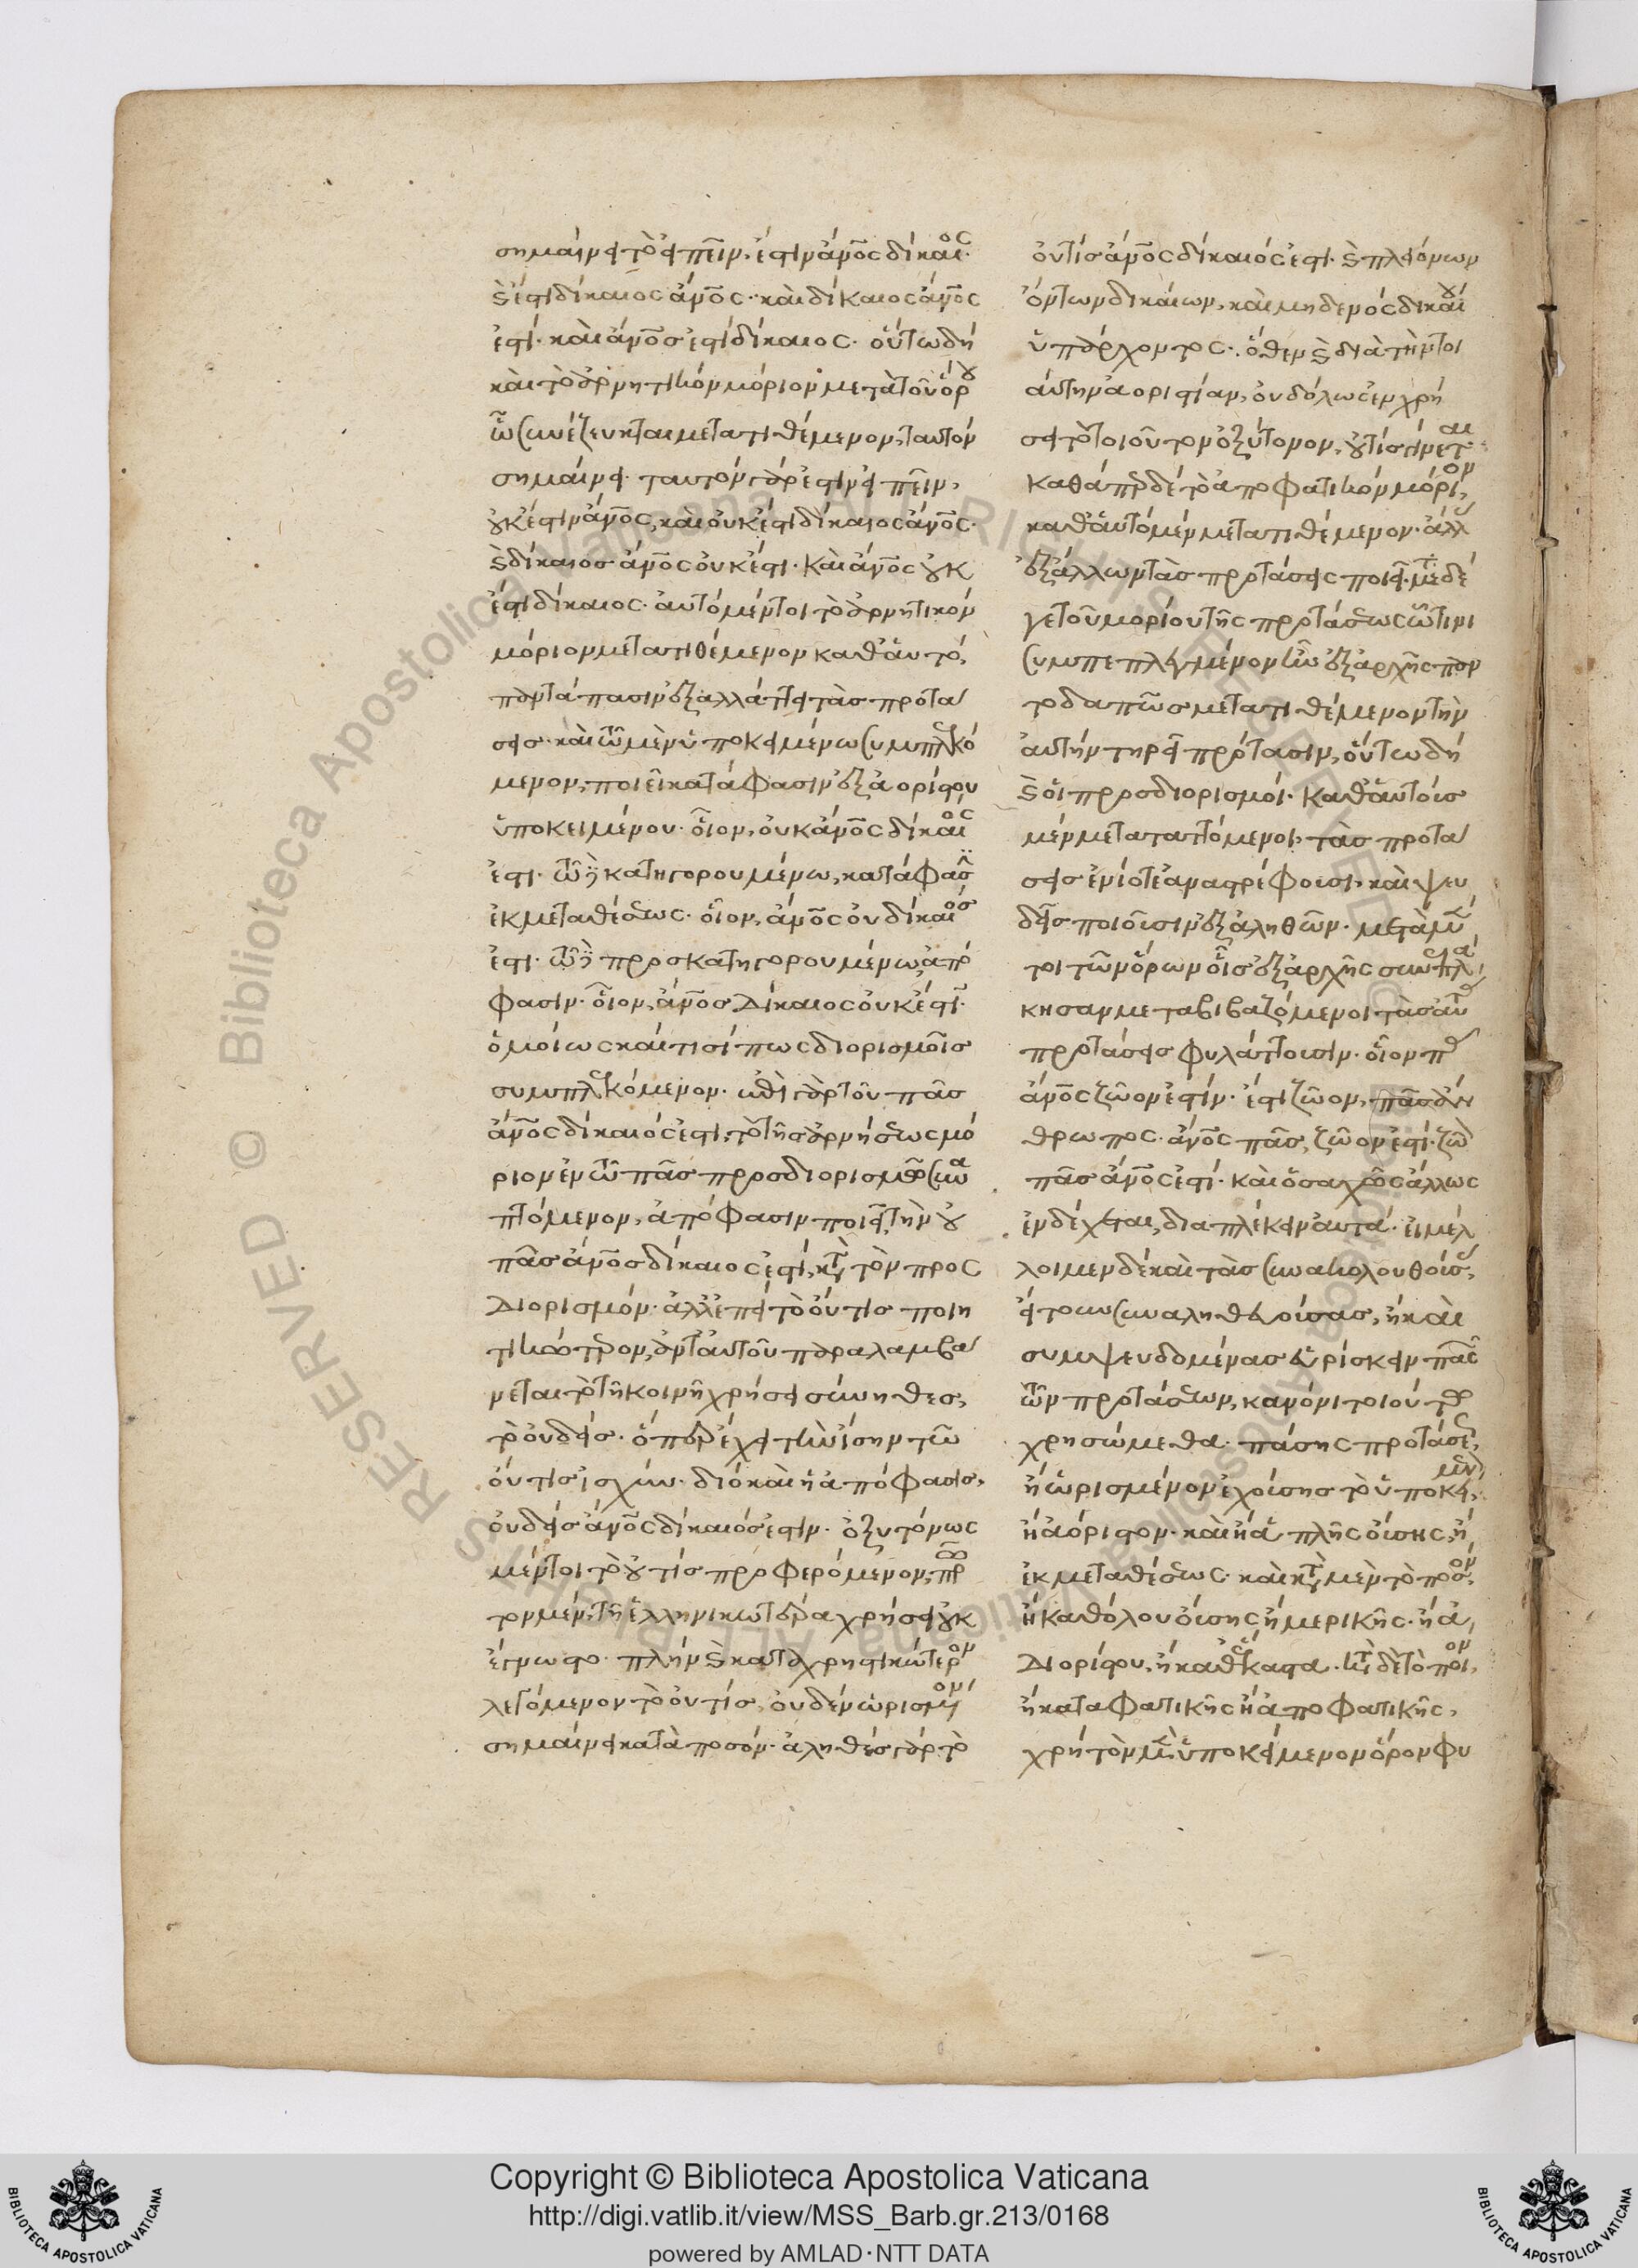 σημαίνει τὸ εἰπεῖν, ἔστιν ἄν̅ο̅ς δίκαιος·
καὶ ἔστι δίκαιος ἄν̅ο̅ς· καὶ δίκαιος ἄν̅ο̅ς
ἐστί· καὶ ἄν̅ο̅σ ἐστὶ δίκαιος· οὕτω δὴ
καὶ τὸ ἀρνητικὸν μόριον μετὰ τοῦ ὅρου
ᾧ συνέζευκται μετατιθέμενον, ταυτὸν
σημαίνει· ταυτὸν γάρ ἐστιν εἰπεῖν,
οὐκ ἔστιν ἄν̅ο̅ς, καὶ οὐκ ἔστι δίκαιος ἄν̅ο̅ς·
καὶ δίκαιος ἄν̅ο̅ς οὐκ ἔστι· καὶ ἄν̅ο̅ς οὐκ
ἔστι δίκαιος· αὐτὸ μέντοι τὸ ἀρνητικὸν
μόριον μετατιθέμενον καθ' αὑτό,
παντάπασιν ἐξαλλάττει τὰσ προτά
σεισ· καὶ τῶ μὲν ὑποκειμένω συμπλεκό
μενον, ποιεῖ κατάφασιν ἐξ ἀορίστου
ὑποκειμένου· οἷον, οὐκ ἄν̅ο̅ς δίκαιος
ἐστι· τῶ δὲ κατηγορουμένω, κατάφασιν
ἐκ μεταθέσεως· οἷον, ἄν̅ο̅ς οὐ δίκαιοσ
ἐστι· τῶ δὲ προσκατηγορουμένω, ἀπό
φασιν· οἷον, ἄν̅ο̅σ δίκαιος οὐκ ἔστι·
ὁμοίως καί τισί πως διορισμοῖσ
συμπλεκόμενον· ἐπὶ γὰρ τοῦ πᾶσ
ἄν̅ο̅ς δίκαιός ἐστι, τὸ τῆσ ἀρνήσεως μό
ριον ἐν τῶ πᾶσ προσδιορισμῶ συνα
πτόμενον, ἀπόφασιν ποιεῖ, τὴν οὐ
πᾶσ ἄν̅ο̅σ δίκαιος ἐστί, κατὰ τὸν προς
διορισμόν· ἀλλ' ἐπεὶ τὸ οὔτισ ποιη
τικώτερον, ἀντ' αὐτοῦ παραλαμβά
νεται τὸ τῆ κοινῆ χρήσει σύνηθεσ,
τὸ οὐδείσ· ὅπερ ἔχει τὴν ἴσην τῶ
οὔτισ ἰσχύν· διὸ καὶ ἡ ἀπόφασισ,
οὐδεὶσ ἄν̅ο̅ς δίκαιόσ ἐστιν· ὀξυτόνως
μέντοι τὸ οὐ τίσ προφερόμενον, πρῶ
τον μὲν, τῆ ἑλληνικωτέρα χρήσει οὐκ
ἔγνωστο· πλὴν καὶ καταχρηστικώτερον
λεγόμενον τὸ οὐ τίσ, οὐδὲν ὡρισμένον
σημαίνει κατὰ ποσόν· ἀληθὲσ γὰρ τὸ
οὐ τίσ ἄν̅ο̅ς δίκαιός ἐστι· καὶ πλειόνων
ὄντων δικαίων, καὶ μηδενὸς δικαίου
ὑπάρχοντος· ὅθεν καὶ διὰ τὴν τοι
αύτην ἀοριστίαν, οὐδ' ὅλως ἐν χρή
σει τὸ τοιοῦτον ὀξύτονον,
καθάπερ δὲ τὸ ἀποφατικὸν μόριον,
καθ' αὑτὸ μὲν μετατιθέμενον· ἄλλασ
ἐξ ἄλλων τὰσ προτάσεις ποιεῖ· μετὰ δέ
γε τοῦ μορίου τῆς προτάσεως ὧτινι
συμπεπλεγμένον ἦν ἐξ ἀρχῆς παν
τοδαπῶσ μετατιθέμενον τὴν
αὐτὴν τηρεῖ πρότασιν, οὕτω δὴ
καὶ οἱ προσδιορισμοί· καθ' αὑτοὺσ
μὲν μετατατόμενοι, τὰσ προτά
σεισ ἐνίοτε ἀναστρέφουσι· καὶ ψευ
δεῖσ ποιοῦσιν ἐξ ἀληθῶν· μετὰ μέν
τοι τῶν ὅρων οἷσ ἐξ ἀρχῆς συνεπλά
κησαν μεταβιβαζόμενοι τὰσ αὐτὰσ
προτάσεισ φυλάττουσιν· οἷον πᾶσ
ἄν̅ο̅ς ζῶον ἐστίν· ἐστὶ ζῶον, πᾶσ ἄν
θρωπος· ἄν̅ο̅ς πᾶσ, ζῶον ἐστί· ζῶον
πᾶσ ἄν̅ο̅ς ἐστί· καὶ ὁσαχῶς ἄλλως
ἐνδέχεται, διαπλέκειν αὐτά· εἰ μέλ
λοιμεν δὲ καὶ τὰσ συνακολουθούσασ,
ἤτοι συναληθευούσασ, ἢ καὶ
συμψευδομένασ εὑρίσκειν πάσαις
τῶν προτάσεων, κανόνι τοιούτω
χρησώμεθα· πάσης προτάσεως,
ἢ ὡρισμένον ἐχούσης τὸ ὑποκείμενον,
ἢ ἀόριστον· καὶ ἢ ἁπλῆς οὔσης, ἢ
ἐκ μεταθέσεως· καὶ κατὰ μὲν τὸ ποσὸν,
ἢ καθόλου οὔσης, ἢ μερικῆς· ἢ ἀ
διορίστου, ἢ καθέκαστα· κατὰ δὲ τὸ ποιὸν,
ἢ καταφατικῆς ἢ ἀποφατικῆς,
χρὴ τὸν μὲν ὑποκείμενον ὅρον φυ
Copyright © Biblioteca Apostolica Vaticana
http://digi.vatlib.it/view/MSS_Barb.gr.213/0168
powered by AMLAD·NTT DATA
BIBLIOTECA APOSTOLICA VATICANA
BIBLIOTECA APOSTOLICA VATICANA